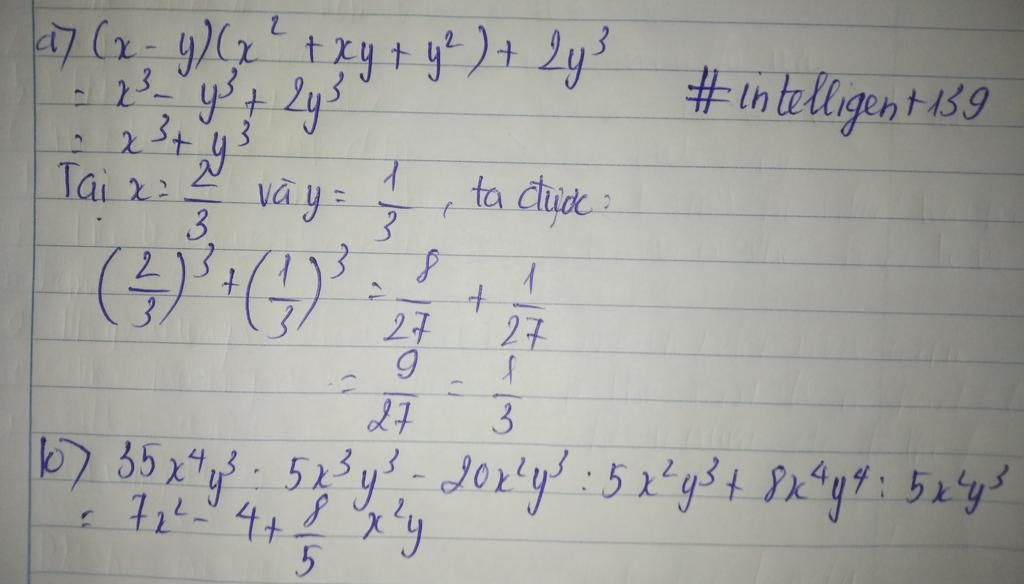 a) (x - y)(x² + xy + y²) + 2y³
= x³ - y³ + 2y³
#intelligent139
= x³ + y³
Tại x = 2/3 và y = 1/3, ta được:
(2/3)³ + (1/3)³ = 8/27 + 1/27
= 9/27 = 1/3
b) 35x⁴y³ : 5x³y³ - 20x²y³ : 5x²y³ + 8x⁴y⁴ : 5x²y³
= 7x² - 4 + 8/5 x²y